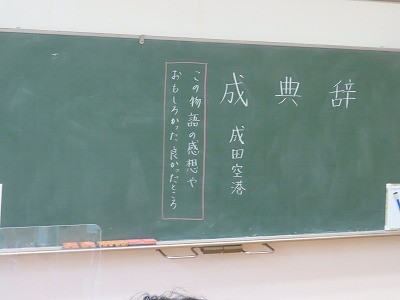 辞典成
成田空港
この物語の感想や
おもしろかった、良かったところ